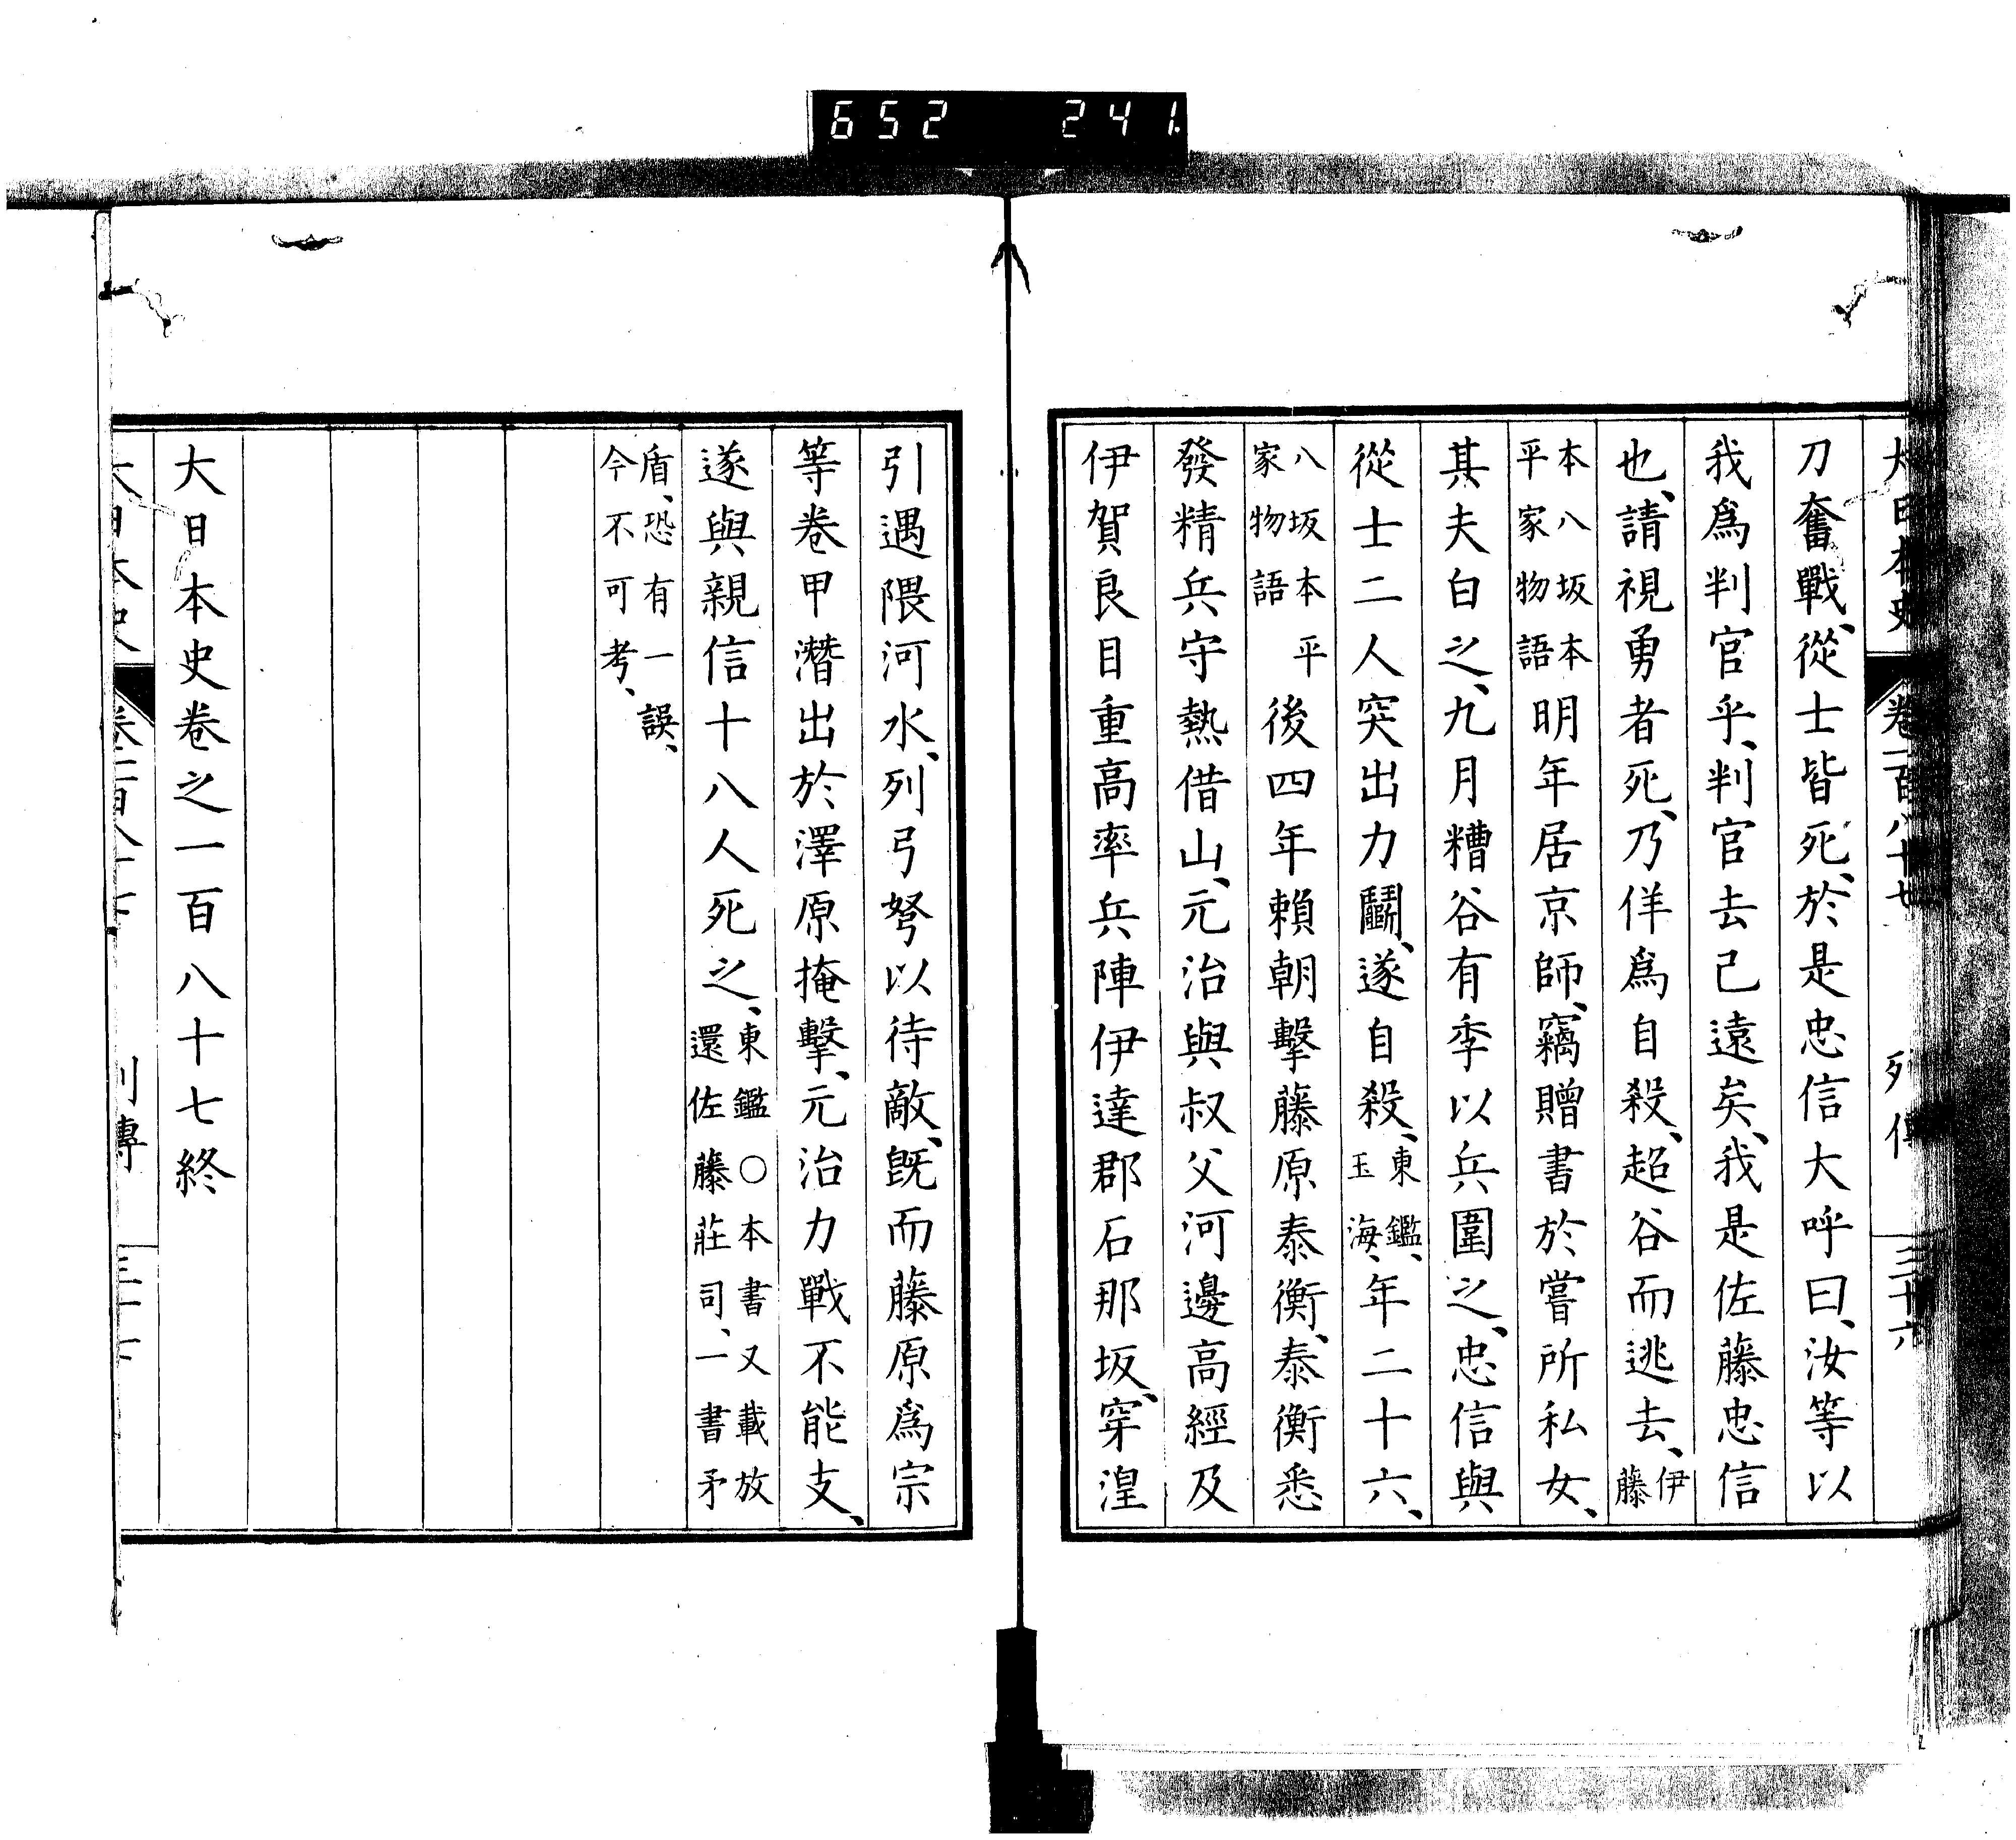 652 241
大日本史 卷一百八十七 列傳 三十六
刀奮戰、從士皆死、於是忠信大呼曰、汝等以
我爲判官乎、判官去已遠矣、我是佐藤忠信
也、請視勇者死、乃佯爲自殺、超谷而逃去、伊藤
本八坂本平家物語明年居京師、竊贈書於嘗所私女、
其夫白之、九月糟谷有季以兵圍之、忠信與
從士二人突出力鬭、遂自殺、東鑑、玉海、年二十六、
八坂本平家物語後四年賴朝擊藤原泰衡、泰衡悉
發精兵守熱借山、元治與叔父河邊高經及
伊賀良目重高率兵陣伊達郡石那坂、穿湟
引遇隈河水、列弓弩以待敵、既而藤原爲宗
等卷甲潛出於澤原掩擊、元治力戰不能支、
遂與親信十八人死之、東鑑〇本書又載放還佐藤莊司、一書矛
盾、恐有一誤、今不可考、
大日本史卷之一百八十七終
大日本史 卷一百八十七 列傳 三十七